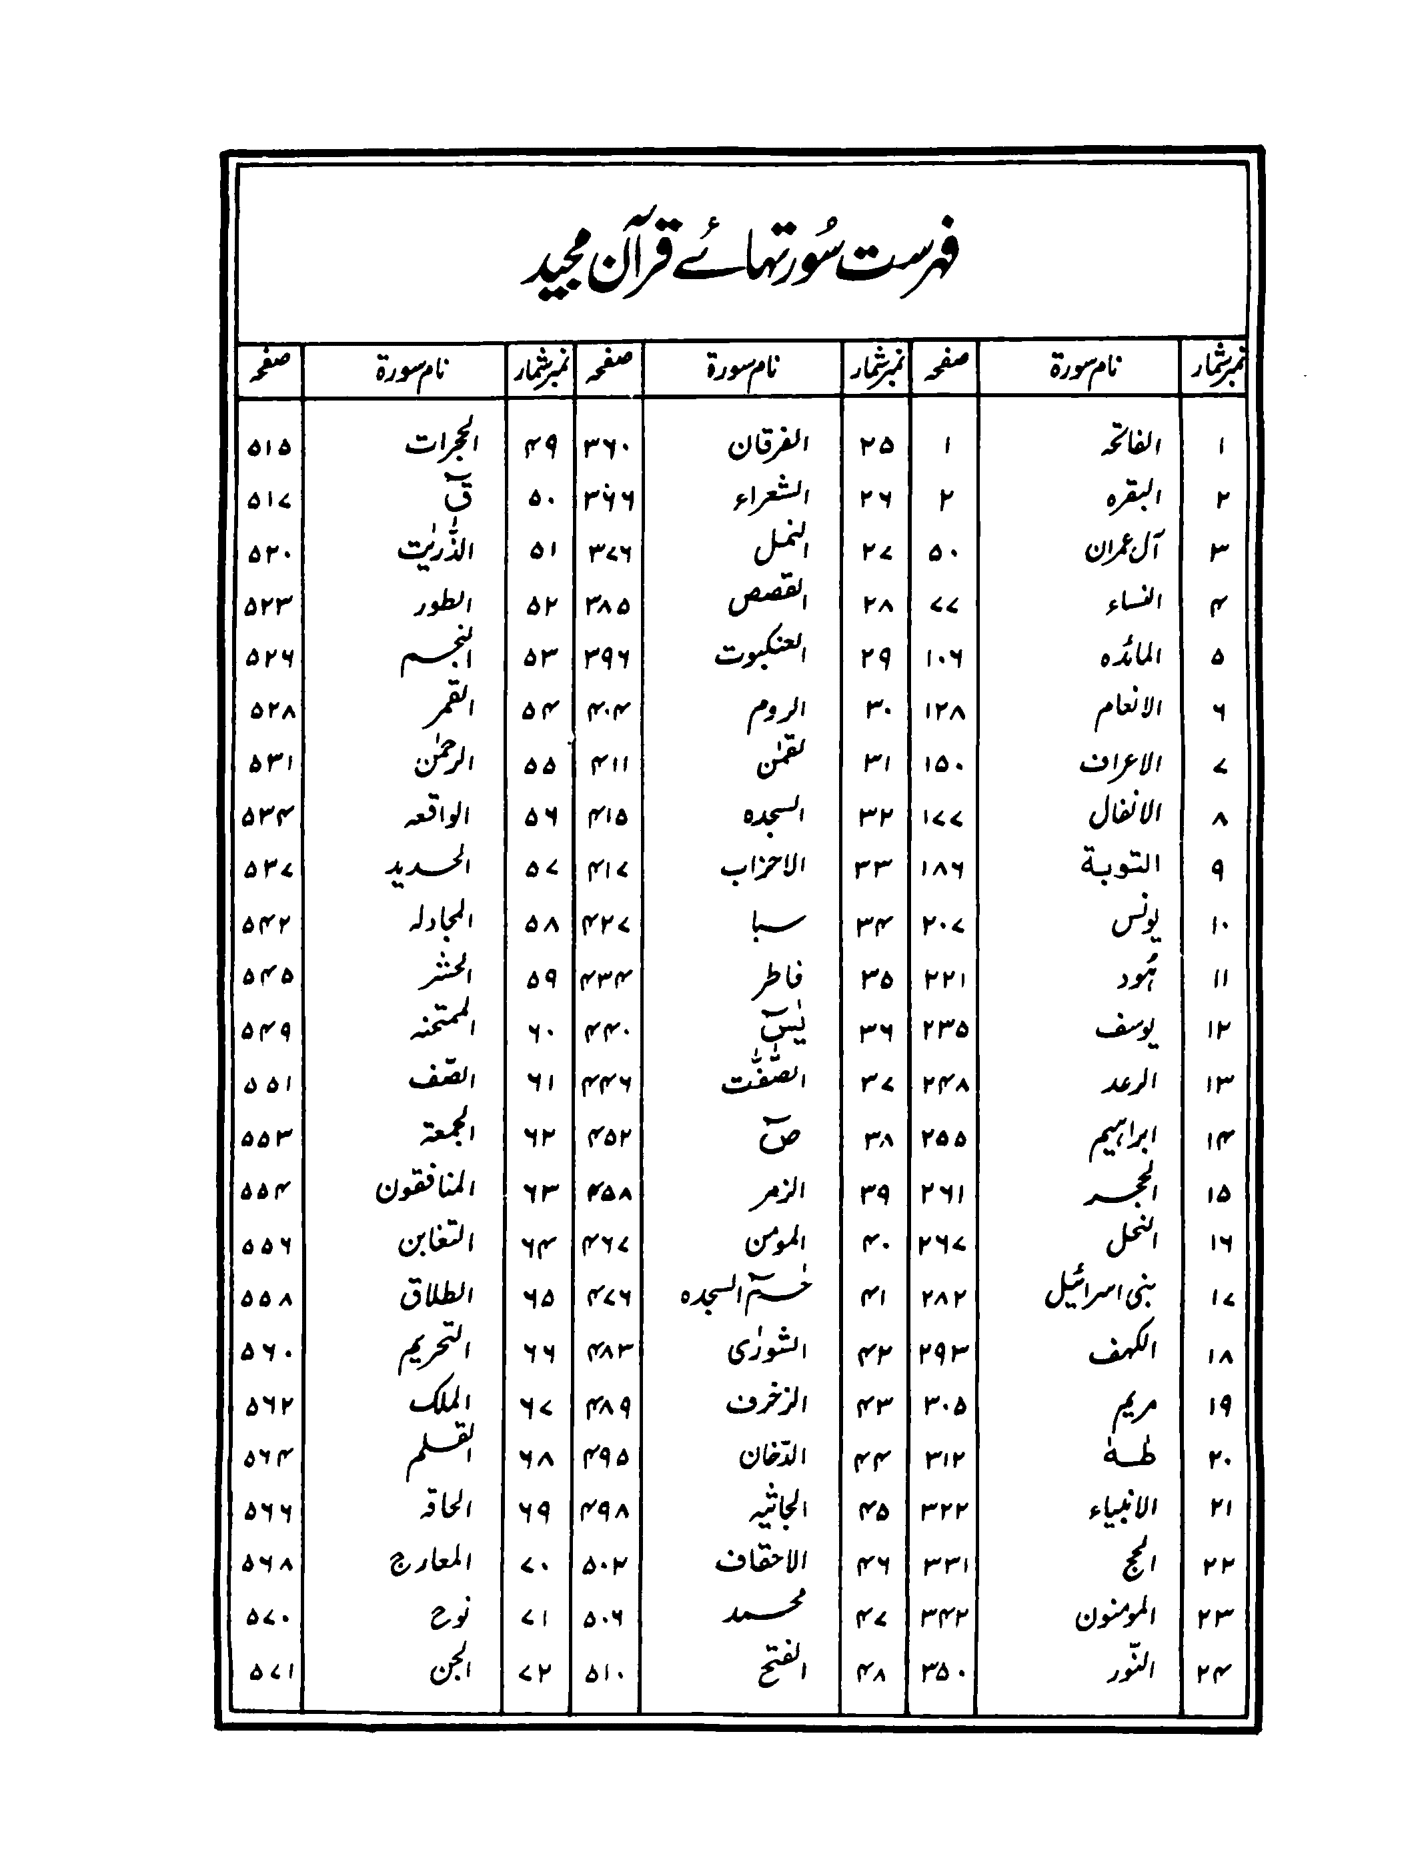 فہرست سُورتہائے قرآن مجید
نمبر شمار نام سورۃ صفحہ نمبر شمار نام سورۃ صفحہ نمبر شمار نام سورۃ صفحہ
۱ الفاتحہ ۱ ۲۵ الفرقان ۳۶۰ ۴۹ الحجرات ۵۱۵
۲ البقرہ ۲ ۲۶ الشعراء ۳۶۶ ۵۰ قٓ ۵۱۷
۳ آل عمران ۵۰ ۲۷ النمل ۳۷۶ ۵۱ الذّٰریٰت ۵۲۰
۴ النساء ۷۷ ۲۸ القصص ۳۸۵ ۵۲ الطور ۵۲۳
۵ المائدہ ۱۰۶ ۲۹ العنکبوت ۳۹۶ ۵۳ النجم ۵۲۶
۶ الانعام ۱۲۸ ۳۰ الروم ۴۰۴ ۵۴ القمر ۵۲۸
۷ الاعراف ۱۵۰ ۳۱ لقمٰن ۴۱۱ ۵۵ الرحمٰن ۵۳۱
۸ الانفال ۱۷۷ ۳۲ السجدہ ۴۱۵ ۵۶ الواقعہ ۵۳۴
۹ التوبة ۱۸۶ ۳۳ الاحزاب ۴۱۷ ۵۷ الحدید ۵۳۷
۱۰ یونس ۲۰۷ ۳۴ سبا ۴۲۷ ۵۸ المجادلہ ۵۴۲
۱۱ ہُود ۲۲۱ ۳۵ فاطر ۴۳۴ ۵۹ الحشر ۵۴۵
۱۲ یوسف ۲۳۵ ۳۶ یٰسٓ ۴۴۰ ۶۰ الممتحنہ ۵۴۹
۱۳ الرعد ۲۴۸ ۳۷ الصّٰفّٰت ۴۴۶ ۶۱ الصّف ۵۵۱
۱۴ ابراہیم ۲۵۵ ۳۸ صٓ ۴۵۲ ۶۲ الجمعۃ ۵۵۳
۱۵ الحجر ۲۶۱ ۳۹ الزمر ۴۵۸ ۶۳ المنافقون ۵۵۴
۱۶ النحل ۲۶۷ ۴۰ المومن ۴۶۷ ۶۴ التغابن ۵۵۶
۱۷ بنی اسرائیل ۲۸۲ ۴۱ حٰمٓ السجدہ ۴۷۶ ۶۵ الطلاق ۵۵۸
۱۸ الکہف ۲۹۳ ۴۲ الشورٰی ۴۸۳ ۶۶ التحریم ۵۶۰
۱۹ مریم ۳۰۵ ۴۳ الزخرف ۴۸۹ ۶۷ الملک ۵۶۲
۲۰ طٰہٰ ۳۱۲ ۴۴ الدّخان ۴۹۵ ۶۸ القلم ۵۶۴
۲۱ الانبیاء ۳۲۲ ۴۵ الجاثیہ ۴۹۸ ۶۹ الحاقہ ۵۶۶
۲۲ الحج ۳۳۱ ۴۶ الاحقاف ۵۰۲ ۷۰ المعارج ۵۶۸
۲۳ المومنون ۳۴۲ ۴۷ محمد ۵۰۶ ۷۱ نوح ۵۷۰
۲۴ النّور ۳۵۰ ۴۸ الفتح ۵۱۰ ۷۲ الجن ۵۷۱